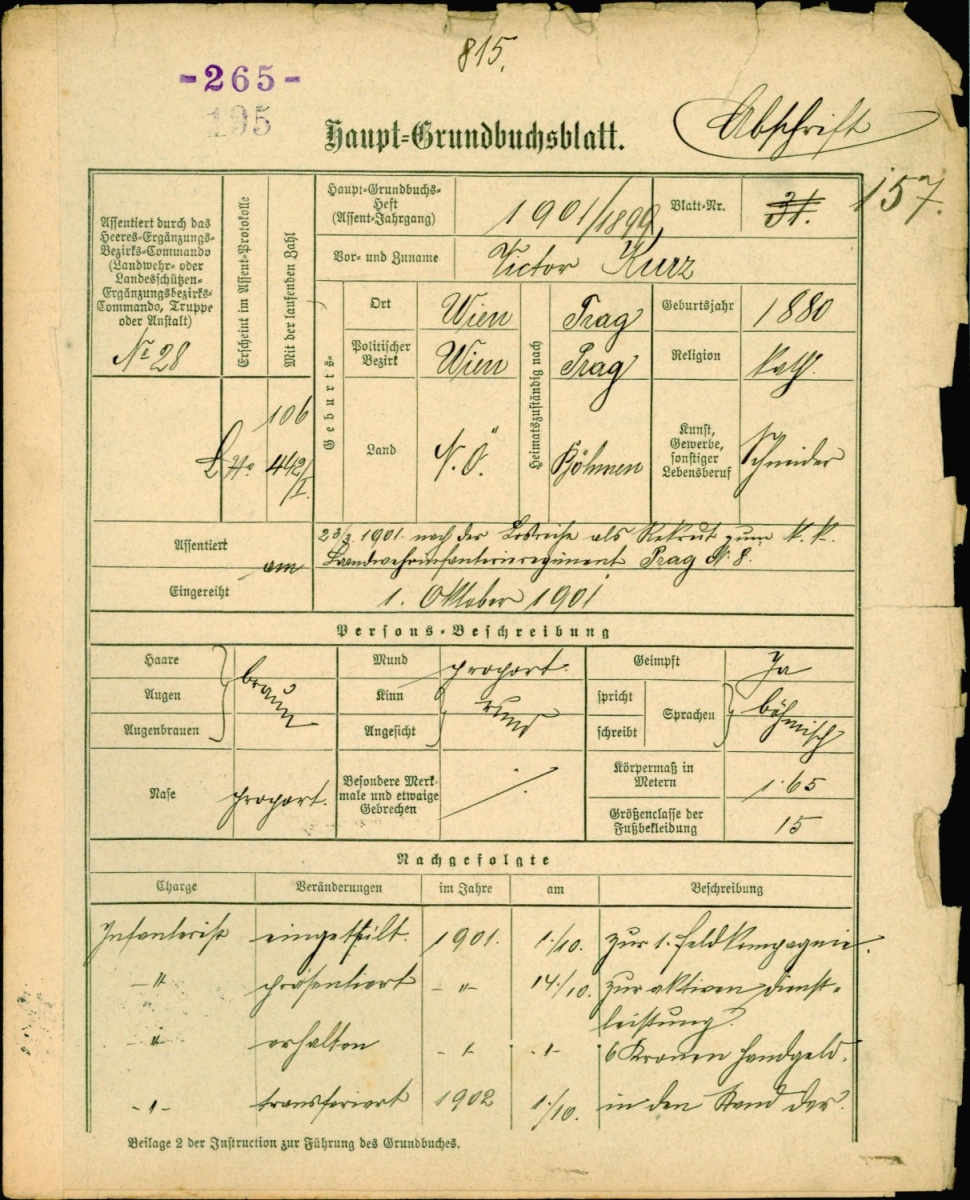 815.
-265-
195
Haupt-Grundbuchsblatt.
Abschrift
157.
Assentiert durch das
Heeres-Ergänzungs-
Bezirks-Commando
(Landwehr- oder
Landesschützen-
Ergänzungsbezirks-
Commando, Truppe
oder Anstalt)
Nr 28
Erscheint im Assent-Protokolle
Mit der laufenden Zahl
106
442/I.
Haupt-Grundbuchs-
Heft
(Assent-Jahrgang)
1901/1899
Blatt-Nr.
31.
Vor- und Zuname
Victor Kurz
Geburts-
Ort
Wien
Politischer
Bezirk
Wien
Land
N.Ö.
Heimatszuständig nach
Prag
Prag
Böhmen
Geburtsjahr
1880
Religion
kath.
Kunst,
Gewerbe,
sonstiger
Lebensberuf
Schneider
Assentiert
am
Eingereiht
23/3 1901 nach der Losreihe als Rekrut zum k. k.
Landwehrinfanterieregiment Prag Nr. 8.
1. Oktober 1901
Persons-Beschreibung
Haare
Augen
Augenbrauen
braun
Nase
proport.
Mund
proport.
Kinn
Angesicht
rund
Besondere Merk-
male und etwaige
Gebrechen
Geimpft
Ja
spricht
schreibt
Sprachen
böhmisch
Körpermaß in
Metern
1·65
Größenclasse der
Fußbekleidung
15
Nachgefolgte
Charge Veränderungen im Jahre am Beschreibung
Infanterist eingetheilt. 1901. 1./10. zur 1. Feldkompagnie.
–〃 präsentiert –〃– 14./10. zur aktiven Dienst-
leistung.
〃 erhalten –〃– –〃– 6 Kronen Handgeld.
–〃– transferiert 1902 1./10. in den Stand der
Beilage 2 der Instruction zur Führung des Grundbuches.